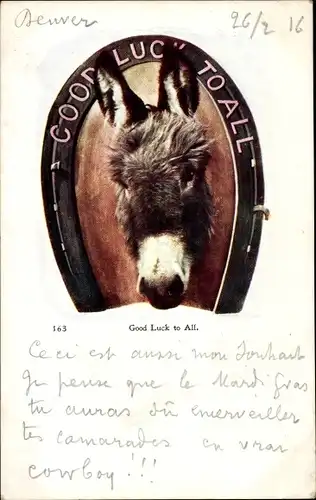 Denver 26/2 16
GOOD LUCK TO ALL
163 Good Luck to All.
Ceci est aussi mon souhait
Je pense que le Mardi gras
tu auras dû émerveiller
tes camarades en vrai
cowboy !!!